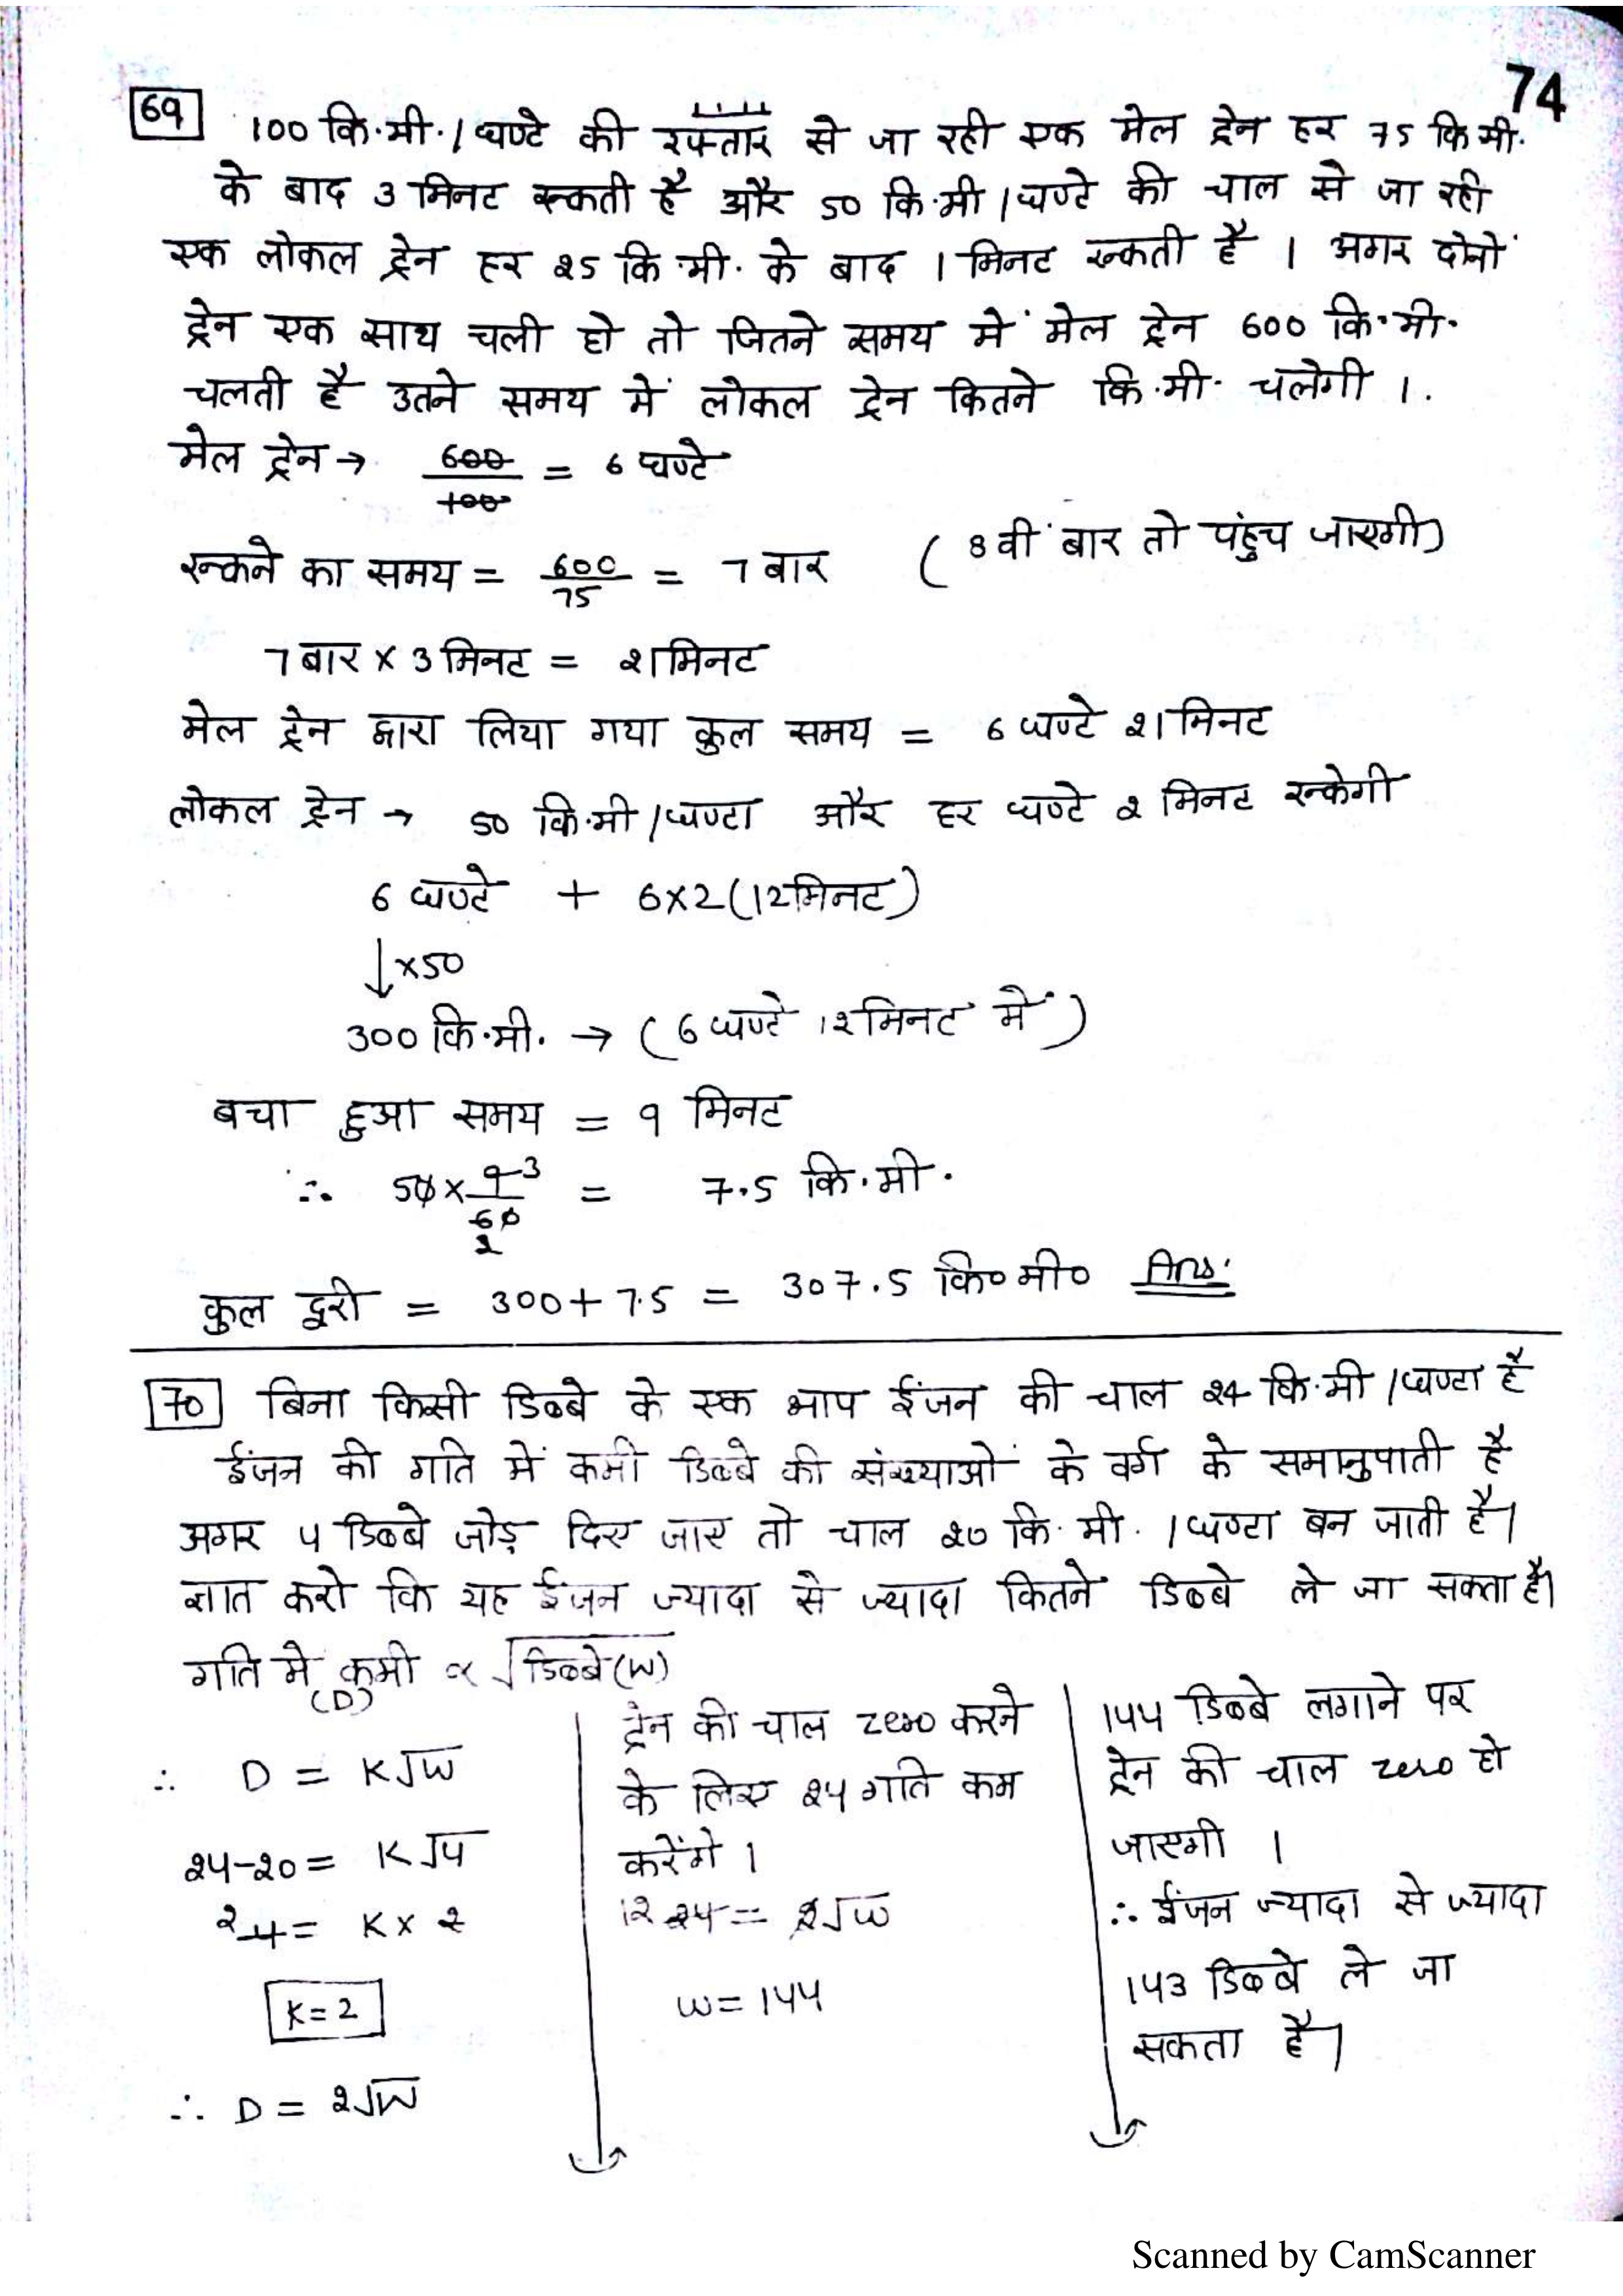 74
69 100 कि.मी./घण्टे की रफ्तार से जा रही एक मेल ट्रेन हर 75 कि.मी.
के बाद 3 मिनट रूकती है और 50 कि.मी/घण्टे की चाल से जा रही
एक लोकल ट्रेन हर 25 कि.मी. के बाद 1 मिनट रूकती है । अगर दोनों
ट्रेन एक साथ चली हो तो जितने समय में मेल ट्रेन 600 कि.मी.
चलती है उतने समय में लोकल ट्रेन कितने कि.मी. चलेगी ।.
मेल ट्रेन → 600/100 = 6 घण्टे
रूकने का समय = 600/75 = 7 बार ( 8 वी बार तो पहुंच जाएगी)
7 बार × 3 मिनट = 21 मिनट
मेल ट्रेन द्वारा लिया गया कुल समय = 6 घण्टे 21 मिनट
लोकल ट्रेन → 50 कि.मी/घण्टा और हर घण्टे 2 मिनट रूकेगी
6 घण्टे + 6×2 (12 मिनट)
↓×50
300 कि.मी. → (6 घण्टे 12 मिनट में)
बचा हुआ समय = 9 मिनट
∴ 50 × 9/60 3 2 = 7.5 कि.मी.
कुल दूरी = 300 + 7.5 = 307.5 कि०मी० Ans.
70 बिना किसी डिब्बे के एक भाप ईंजन की चाल 24 कि.मी/घण्टा है
ईंजन की गति में कमी डिब्बे की संख्याओं के वर्ग के समानुपाती है
अगर 4 डिब्बे जोड़ दिए जाए तो चाल 20 कि.मी./घण्टा बन जाती है।
ज्ञात करो कि यह ईंजन ज्यादा से ज्यादा कितने डिब्बे ले जा सकता है।
गति में कमी (D) ∝ √डिब्बे(W)
∴ D = K√W
24-20 = K√4
2 4 = K × 2
K = 2
∴ D = 2√W
ट्रेन की चाल zero करने
के लिए 24 गति कम
करेंगे ।
12 24 = 2√W
W = 144
144 डिब्बे लगाने पर
ट्रेन की चाल zero हो
जाएगी ।
∴ ईंजन ज्यादा से ज्यादा
143 डिब्बे ले जा
सकता है।
Scanned by CamScanner